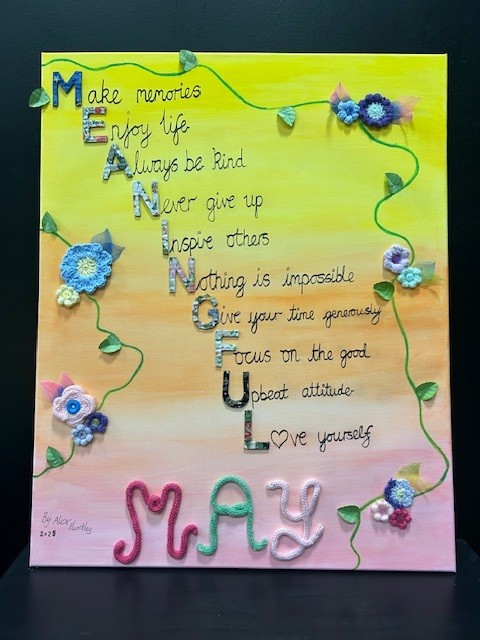 Make memories
Enjoy life
Always be kind
Never give up
Inspire others
Nothing is impossible
Give your time generously
Focus on the good
Upbeat attitude
L♡ve yourself
MAY
By Alex Huntley
2025